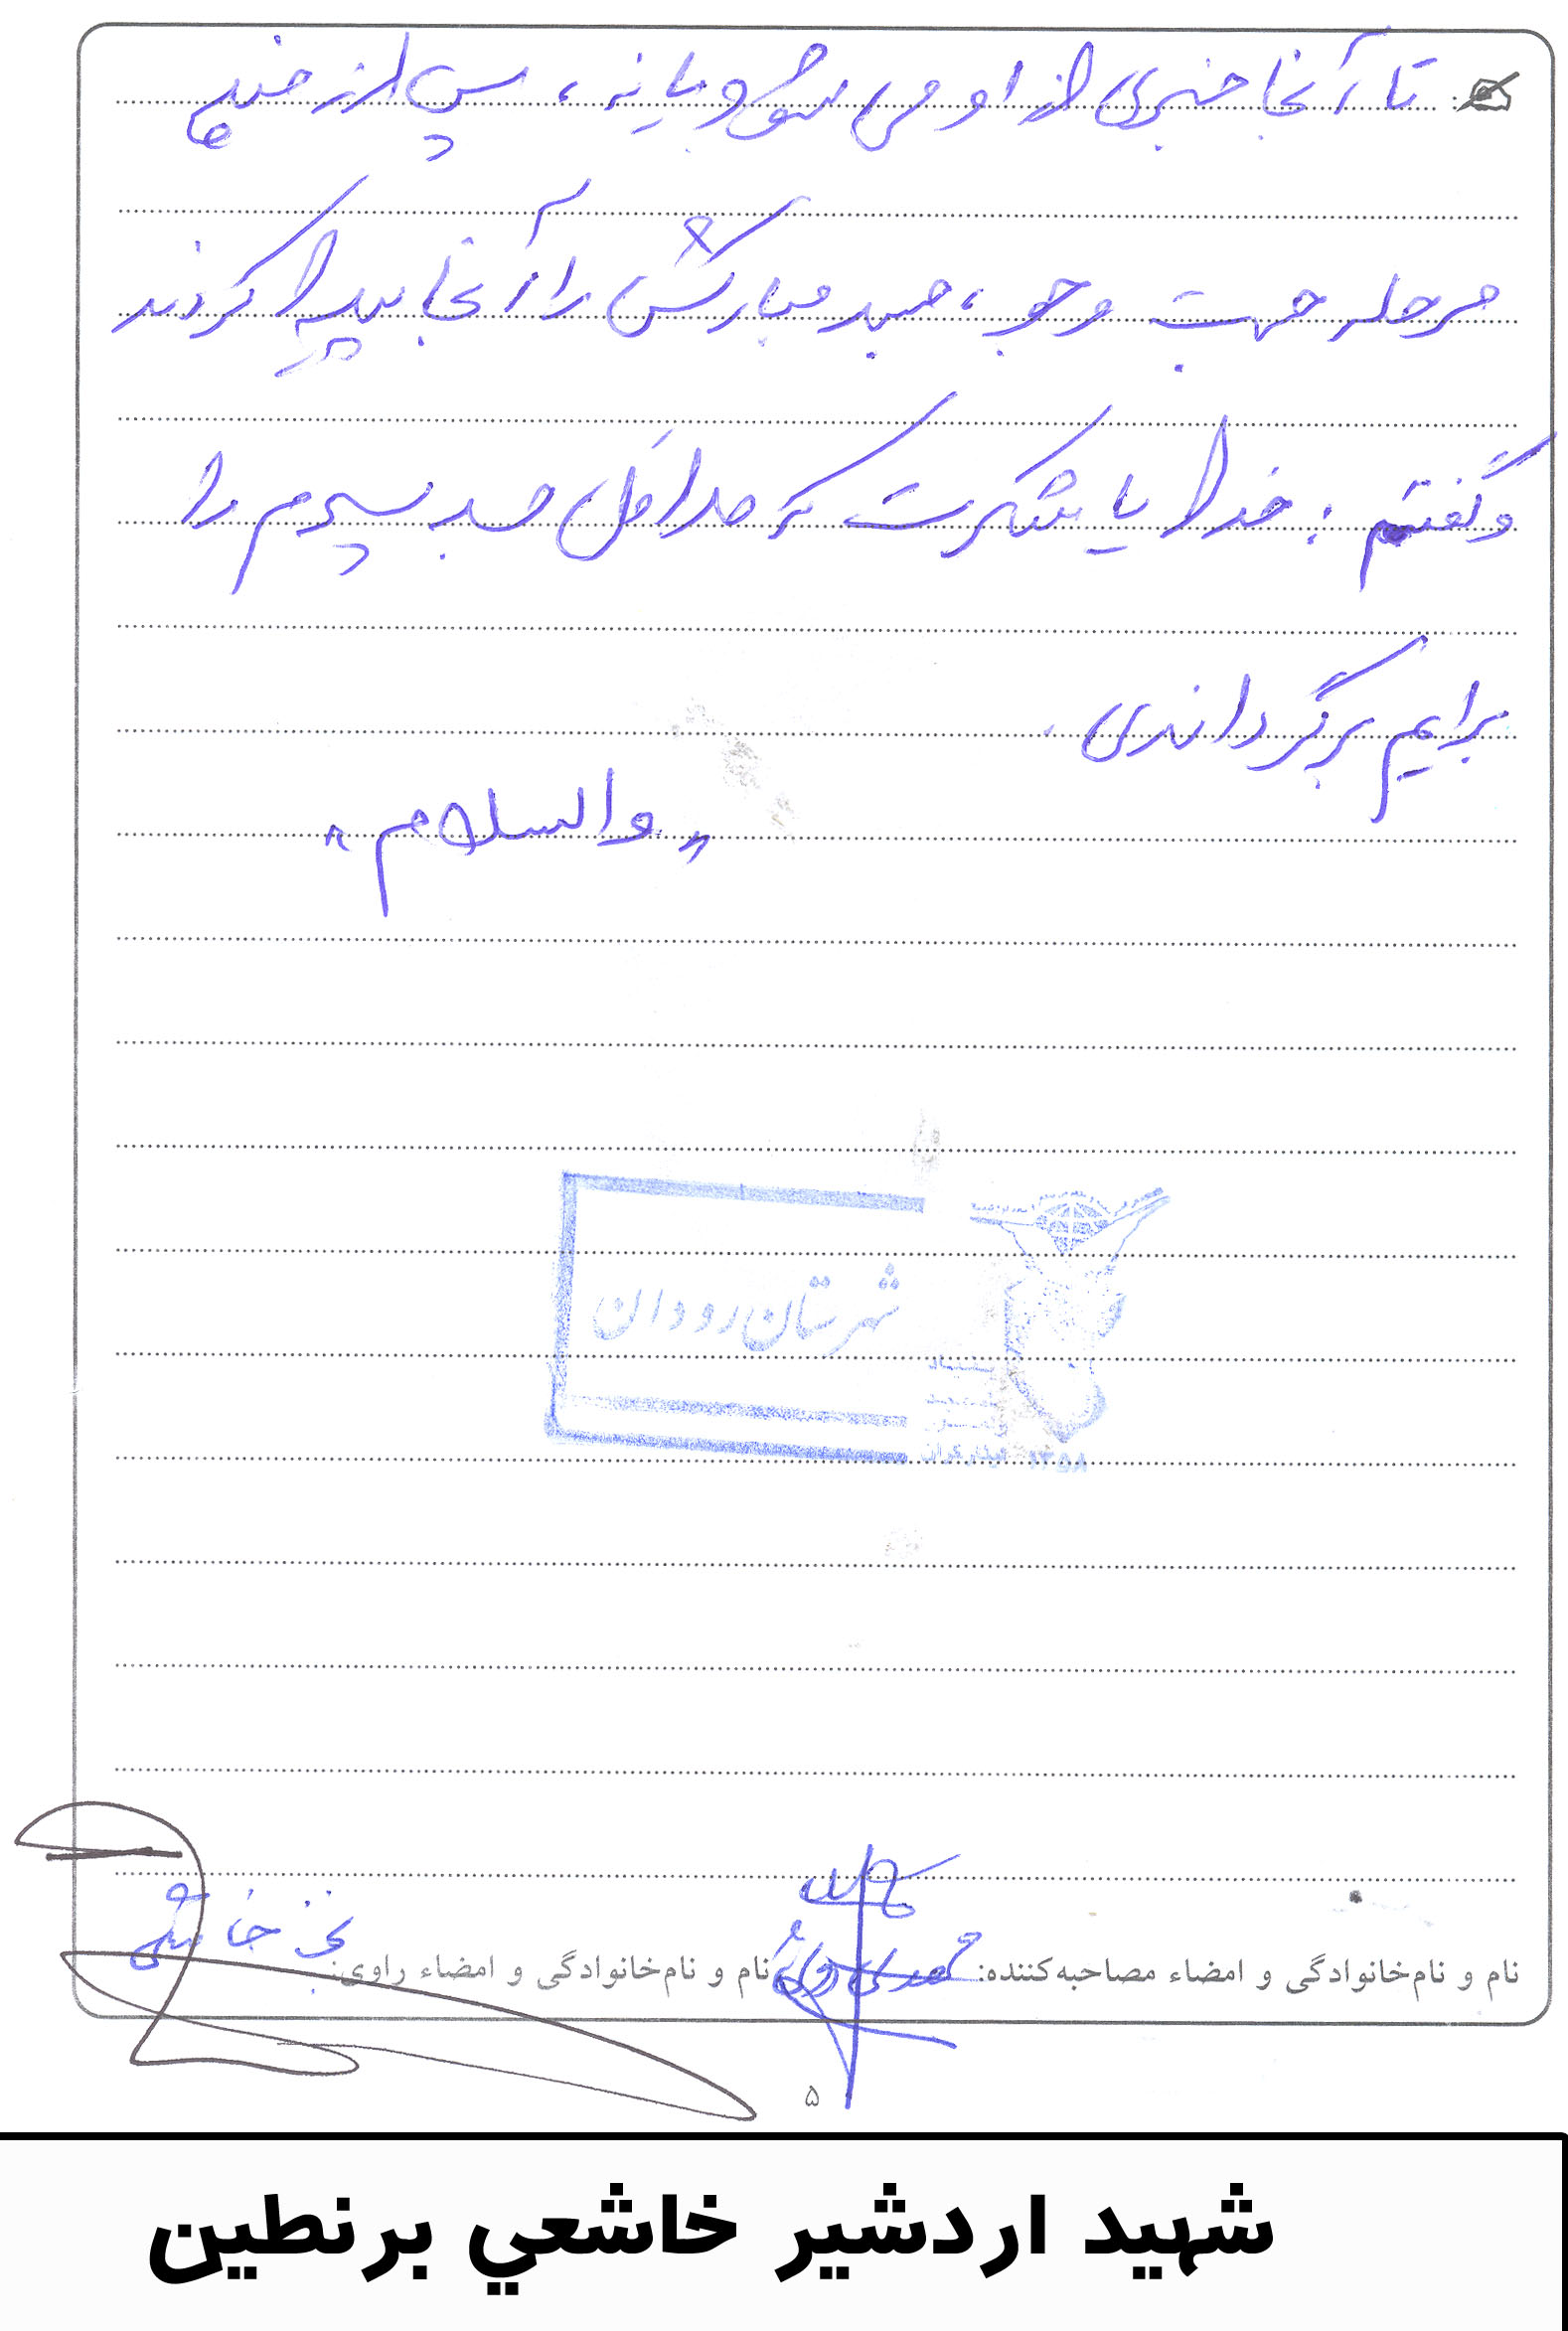 تا آنجا خبری از او می شود یا نه، پس از چند
مرحله جست وجو، جسد مبارکش را آنجا پیدا کردند
و گفتم: خدا یا شکرت که حداقل جسد پسرم را
برایم برگرداندی.
«والسلام»
شهرستان رودان
بنیاد
شهید
ایثارگران ۱۳۵۸
نام و نام‌خانوادگی و امضاء مصاحبه‌کننده: نام و نام‌خانوادگی و امضاء راوی: خاشعی
۵
شهيد اردشير خاشعي برنطين